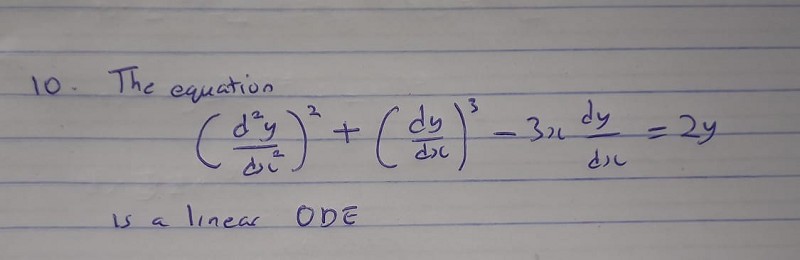 10. The equation
(d²y/dx²)² + (dy/dx)³ - 3x dy/dx = 2y
is a linear ODE